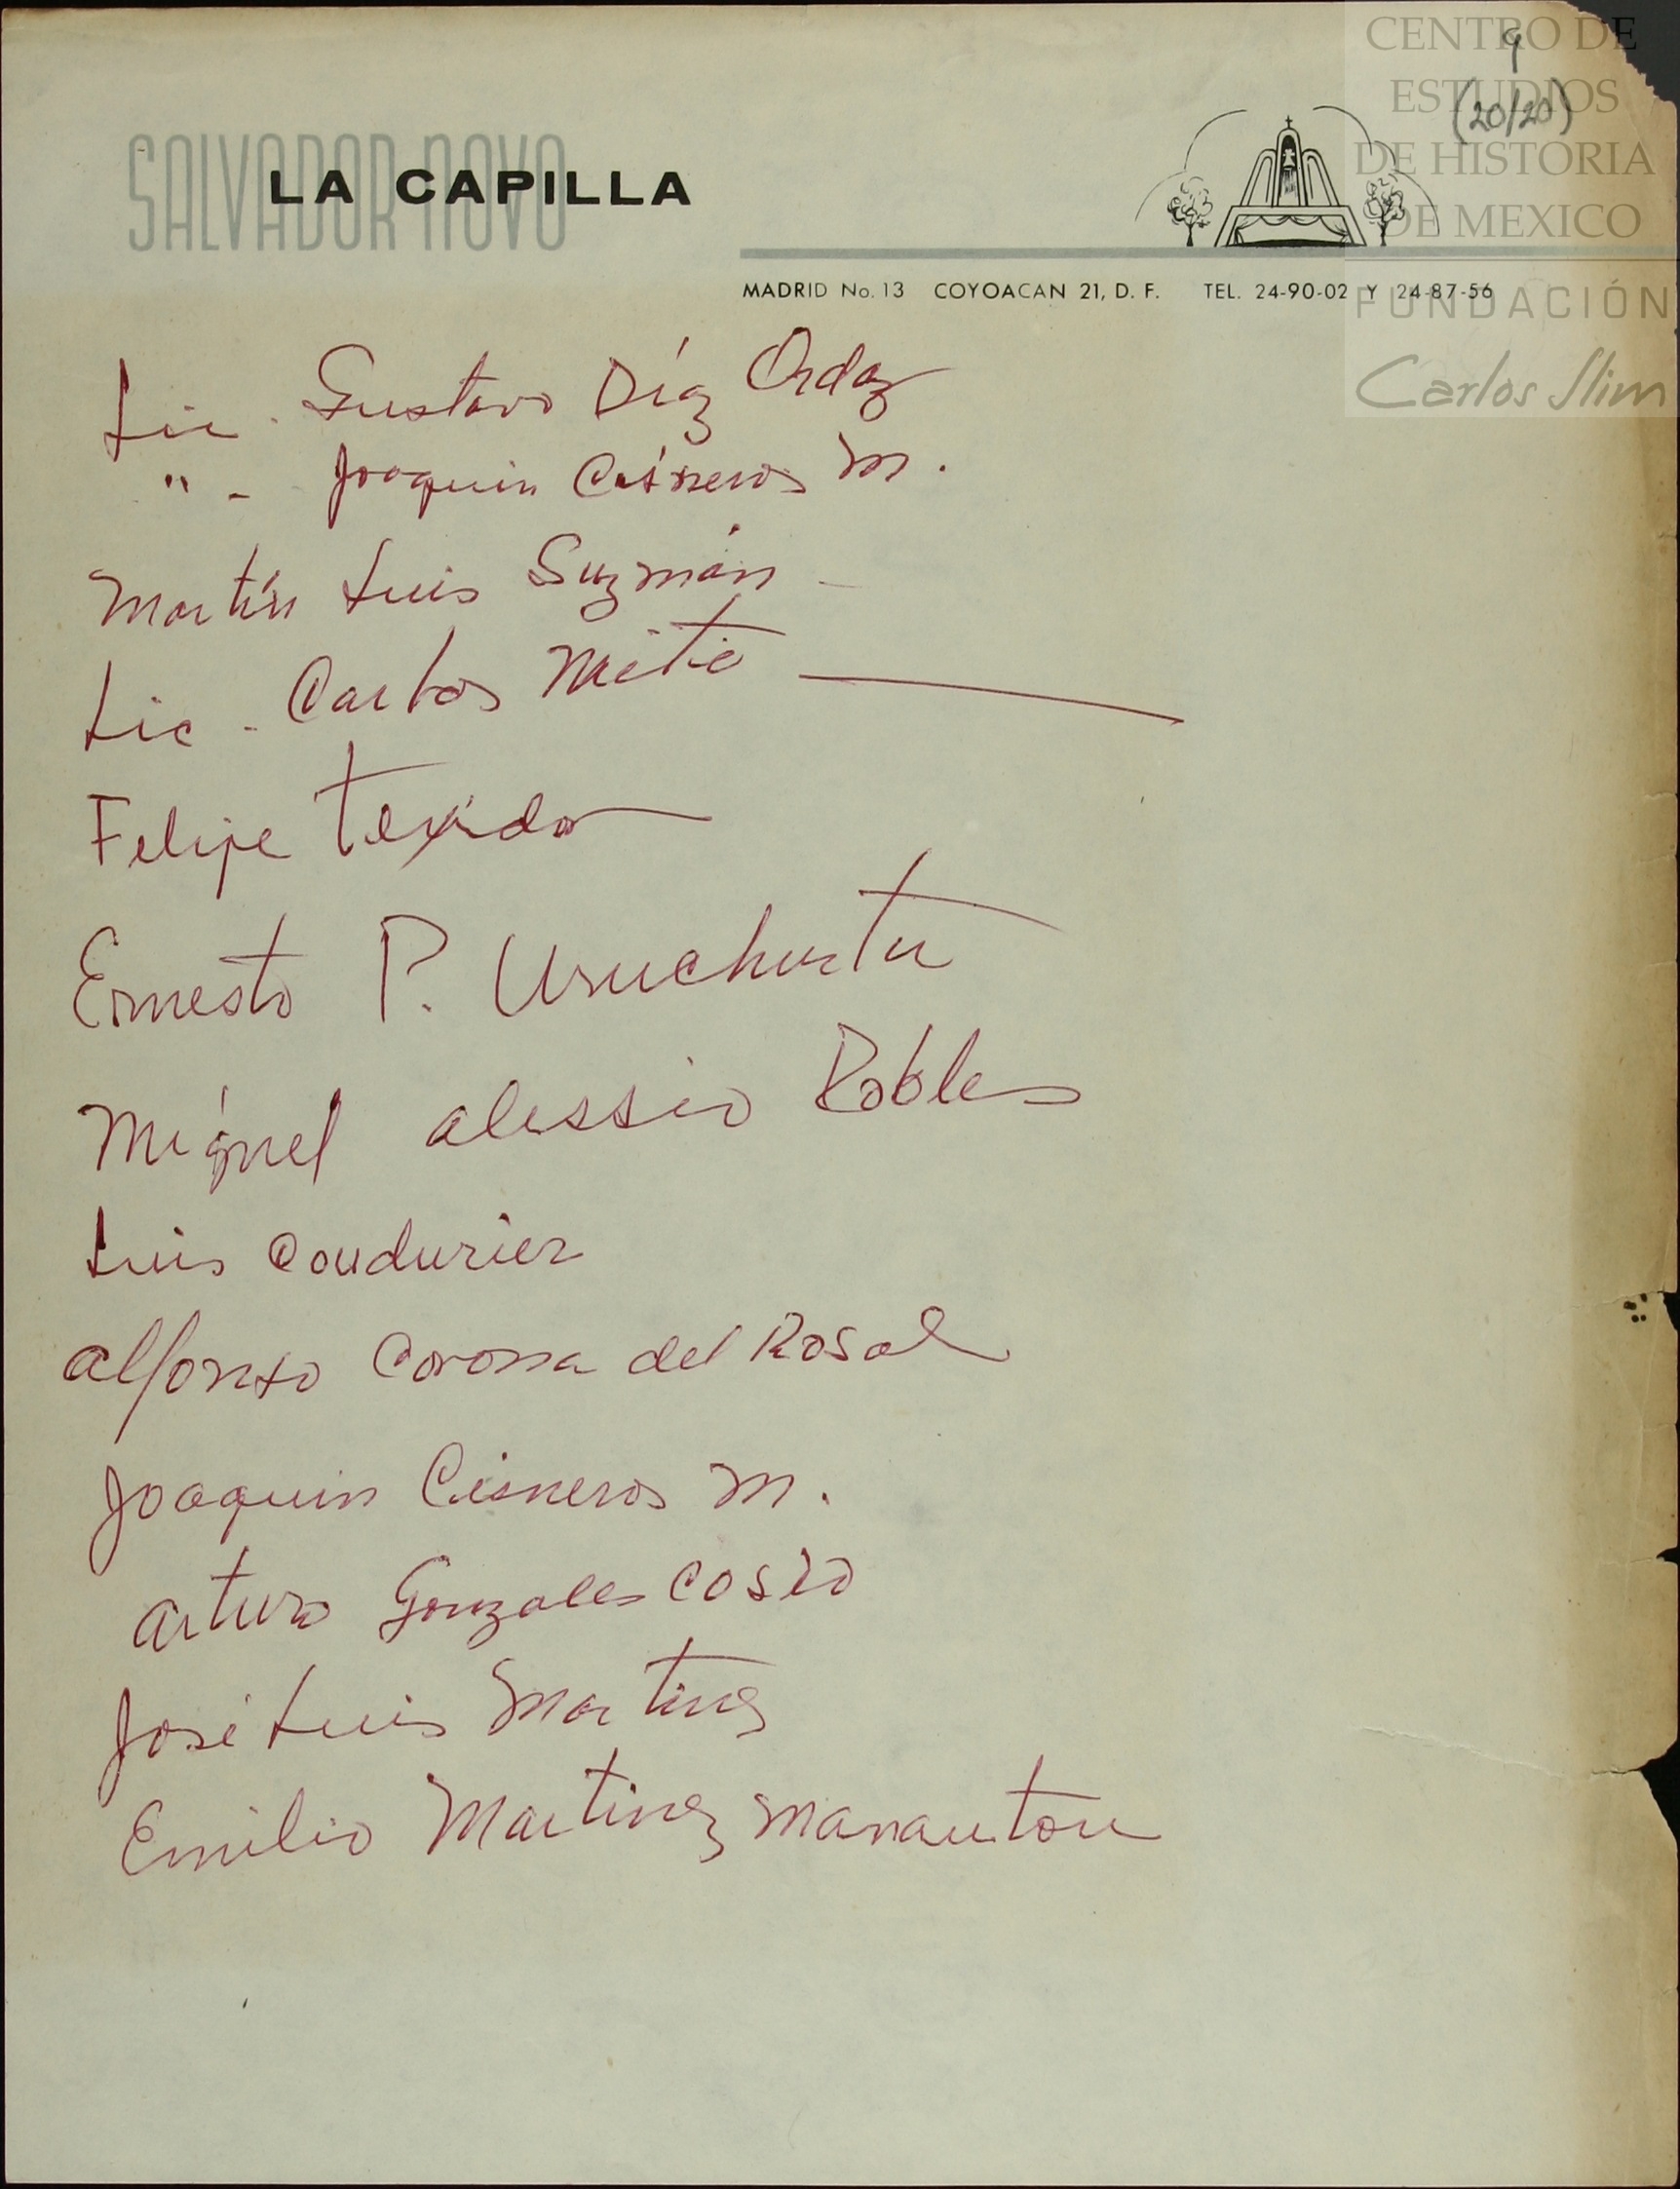 9
(20/20)
CENTRO DE
ESTUDIOS
DE HISTORIA
DE MEXICO
FUNDACIÓN
Carlos Slim
SALVADOR NOVO
LA CAPILLA
MADRID No. 13 COYOACAN 21, D. F. TEL. 24-90-02 Y 24-87-56
Lic. Gustavo Díaz Ordaz
" - Joaquin Cisneros M.
Martín Luis Guzmán -
Lic. Carlos
Felipe Texidor
Ernesto P. Uruchurtu
Miguel Alessio Robles
Luis Coudurier
Alfonso Corona del Rosal
Joaquin Cisneros M.
Arturo Gonzales Cosío
José Luis Martinez
Emilio Martinez Manautou